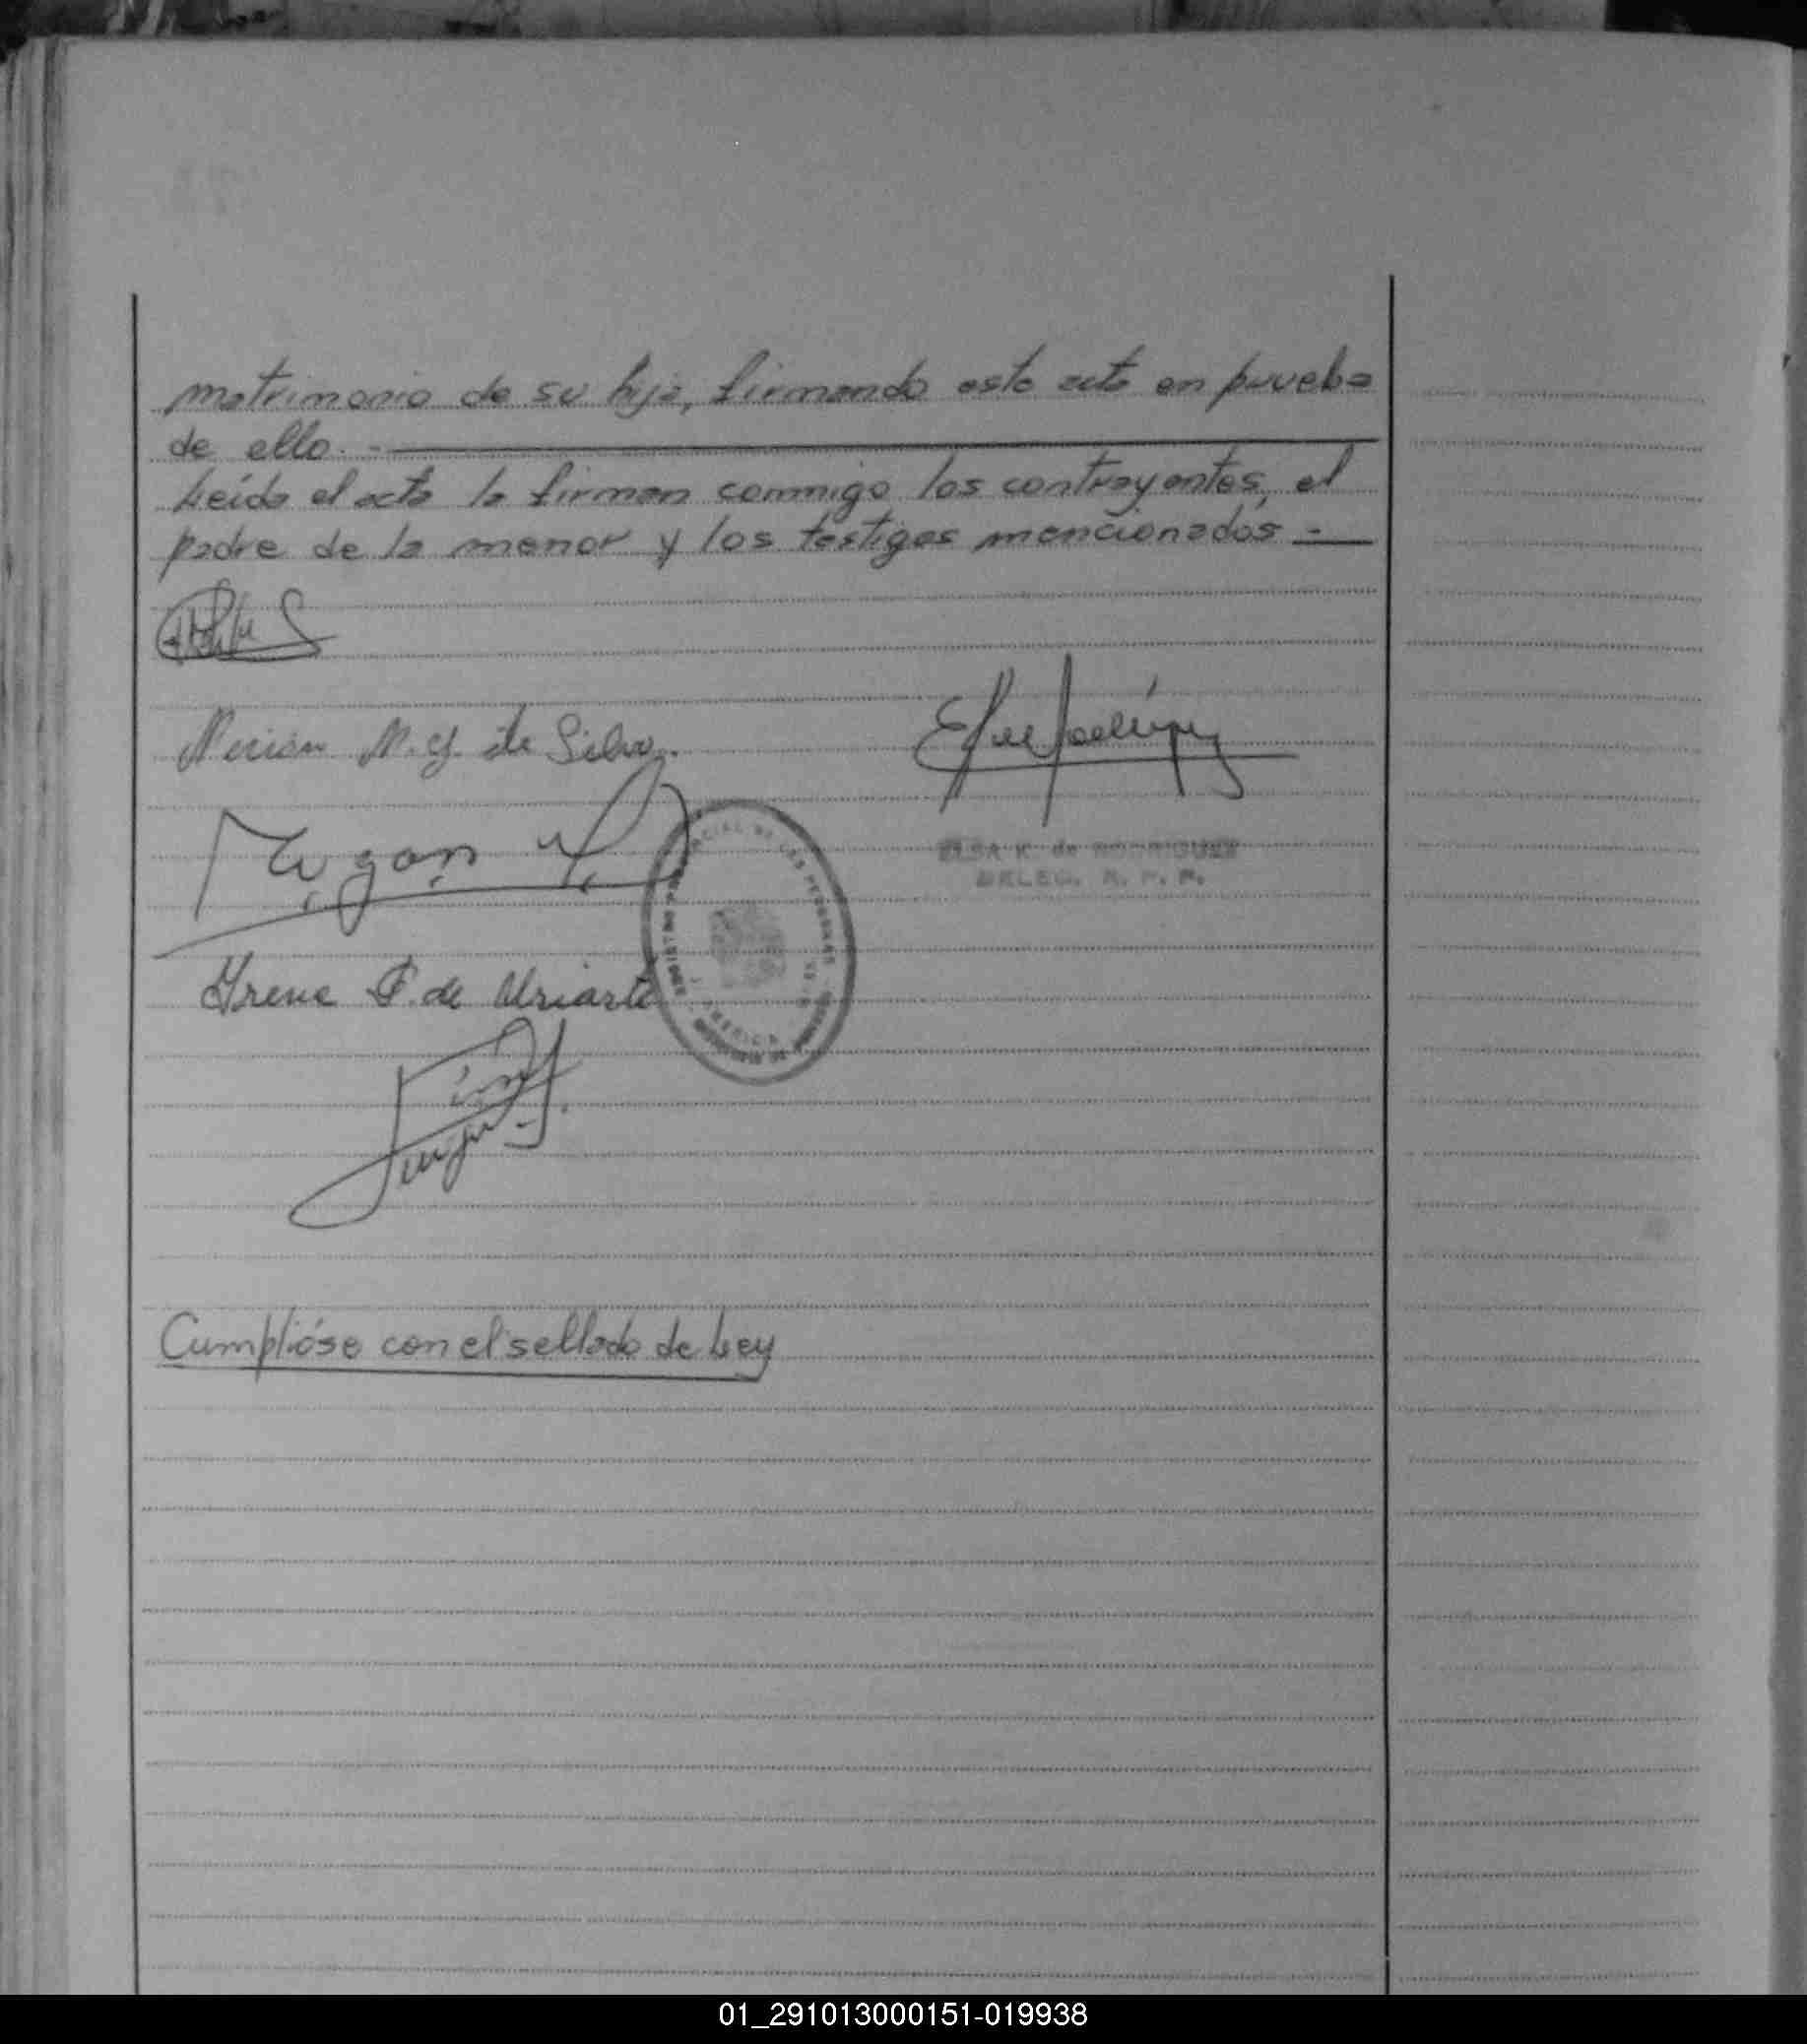 matrimonio de su hija, firmando este acta en prueba
de ello. -
Leída el acta la firman conmigo los contrayentes, el
padre de la menor y los testigos mencionados -
Mirian M. G. de Silva.
ELSA K. de RODRIGUEZ
DELEG. R. P. P.
Irene de Uriarte
AMERICA
Cumplióse con el sellado de Ley
01_291013000151-019938